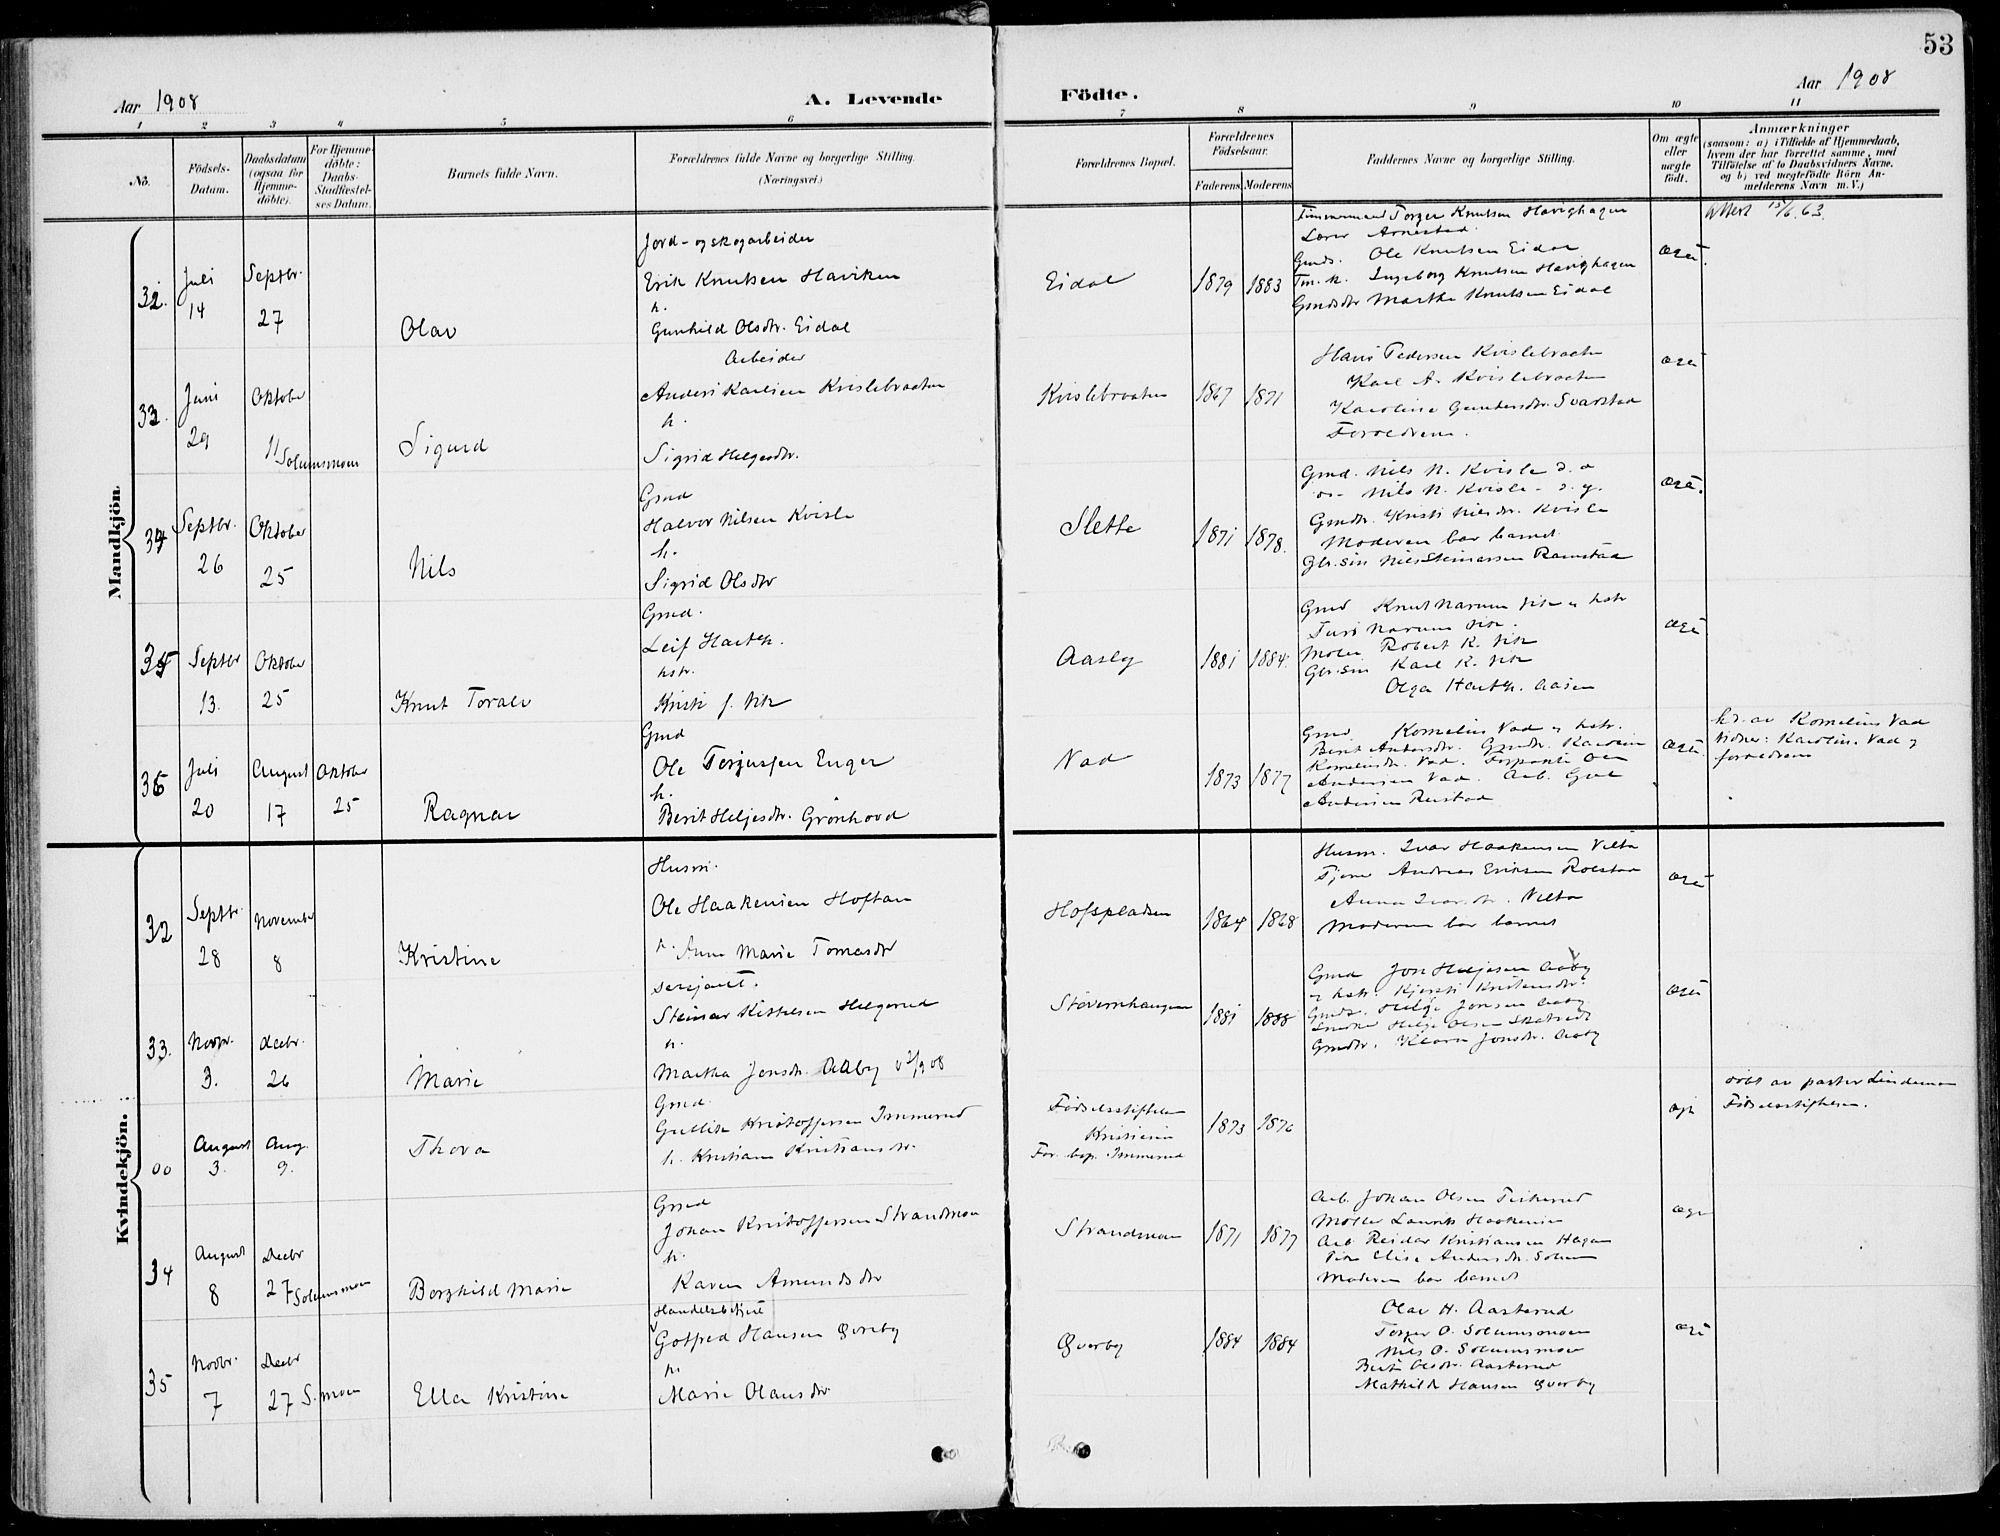 53
Aar 1908
A. Levende
Födte.
Aar 1908
1 2 3 4 5 6 7 8 9 10 11
No.
Födsels-
Datum.
Daabsdatum
(ogsaa for
Hjemme-
döbte).
For Hjemme-
döbte:
Daabs-
Stadfæstel-
ses Datum.
Barnets fulde Navn.
Forældrenes fulde Navne og borgerlige Stilling.
(Næringsvei.)
Forældrenes Bopæl.
Forældrenes
Födselsaar.
Faderens Moderens
Faddernes Navne og borgerlige Stilling.
Om ægte
eller
uægte
födt.
Anmærkninger
(saasom: a) i Tilfælde af Hjemmedaab,
hvem der har forrettet samme, med
Tilföielse af to Daabsvidners Navne,
og b) ved uægtefödte Börn An-
melderens Navn m. V.)
Mandkjön
32.
Juli
14
Septbr.
27
Olav
Jord- og skogarbeider
Erik Knutsen Haviken
h.
Gunhild Olsdtr. Eidal
Eidal
1879 1883
Timmermand Torger Knutsen Havighagen
Lærer Arnestad
Gmds. Ole Knutsen Eidal
Tm. k. Ingeborg Knutsen Havighagen
Gmdsdtr Marthe Knutsen Eidal
Attest 15/6.63.
33.
Juni
29
Oktober
11 Solumsmoen
Sigurd
Arbeider
Anders Karlsen Kvislebraaten
h.
Sigrid Helgesdtr.
Kvislebraaten
1867 1871
Hans Pedersen Kvislebraaten
Karl A. Kvislebraaten
Karoline Gundersdtr. Svarstad
Forældrene.
34
Septbr.
26
Oktober
25
Nils
Gmd
Halvor Nilsen Kvisle
h.
Sigrid Olsdtr
Slette
1871 1878.
Gmd. Nils N. Kvisle d. æ
Nils N. Kvisle d. y.
Gmdtr. Kristi Nilsdtr. Kvisle
Moderen bar barnet
Gbr.søn Nils Steinarsen Ramstad
35
Septbr
13.
Oktober
25
Knut Toralv
Gmd.
Leif
hstr.
Kristi f. Vik
Aasly
1881 1884.
Gmd Knut Narum Vik og hstr
Turi Narum Vik.
Møller Robert K. Vik
Gbr.søn Karl K. Vik
Olga Aasen
36
Juli
20
August
17
Oktober
25
Ragnar
Gmd
Ole Torgersen Enger
h.
Berit Helgesdtr. Grønhovd
Vad
1873 1877
Gmd. Kornelius Vad og hstr.
Berit Andersdtr. Gmdtr. Karoline
Korneliusdtr. Vad. Forpagter Ole
Andersen Vad. Arb.
Andersen Rustad
hd. av Kornelius Vad
vidner: Karoline Vad og
forældrene
Kvindekjön.
32
Septbr.
28
November
8
Kristine
Husm.
Ole Haakensen Hoftan
h. Anne Marie Tomasdtr
Hofspladsen
1864 1868
Husm. Ivar Haakensen Velta
Tjener Andreas Eriksen Rolstad
Anna Ivarsdtr. Velta
Moderen bar barnet
33.
Novbr.
3.
Decbr.
26
Marie
Serjant.
Steinar Kittelsen Helgerud
h.
Martha Jonsdtr. Aaby
Støvernhaugen
1881 1888
Gmd Jon Helgesen Aaby
og hstr. Kjersti Kristensdtr.
Gmds. Helge Jonsen Aaby
Smed Helge Olsen
Gmdtr. Klara Jonsdtr. Aaby
00
August
3.
Aug.
9.
Thora
Gmd.
Gullik Kristoffersen Immerud
h. Kristiane Kristiansdtr.
Fødselsstiftelsen
Kristiania
For. bop. Immerud
1873 1876
døbt av pastor Lindeman
Fødselsstiftelsen.
34
August
8
Decbr
27 Solumsmoen
Borghild Marie
Gmd
Johan Kristoffersen Strandmoen
h.
Karen Amundsdtr
Strandmoen
1871 1877
Arb. Johan Olsen Teikerud
Møller Laurits Haakensen
Arb. Reidar Kristiansen Hagen
Elise Andersdtr. Solum
Moderen bar barnet
35
Novbr.
7
Decbr
27 S.moen
Ella Kristine
Handelsbetjent
Gotfred Hansen Qverby
h.
Marie Olausdtr
Qverby
1884 1884
Olav H. Aasterud
Torger O. Solumsmoen
Nils O. Solumsmoen
Berit Olsdtr. Aasterud
Mathilde Hansen Qverby